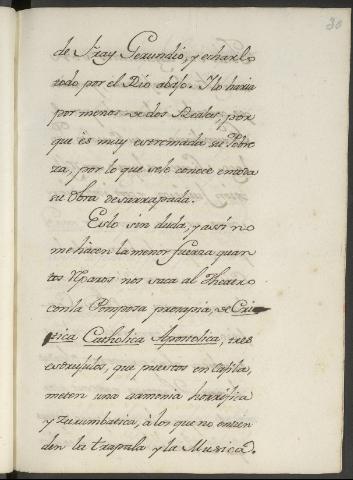 30
de Fray Gerundio, y echarlo
todo por el Rio abajo. Ylo haria
por menos de dos Reales, por
que és muy extremada su Pobre
za, por lo que solo conoce en toda
su Obra desarrapada.
Esto sin duda, y assí no
me hàcen la menor fuerza quan
tos Reparos nos saca al Theatro
con la Pomposa prosapia, de Cri
tica Catholica Apostolica, tres
esdrujulos, que puestos en capilla,
meten una armonia horrifica
y zurumbatica, à los que no entien
den la trapala y la Musica.